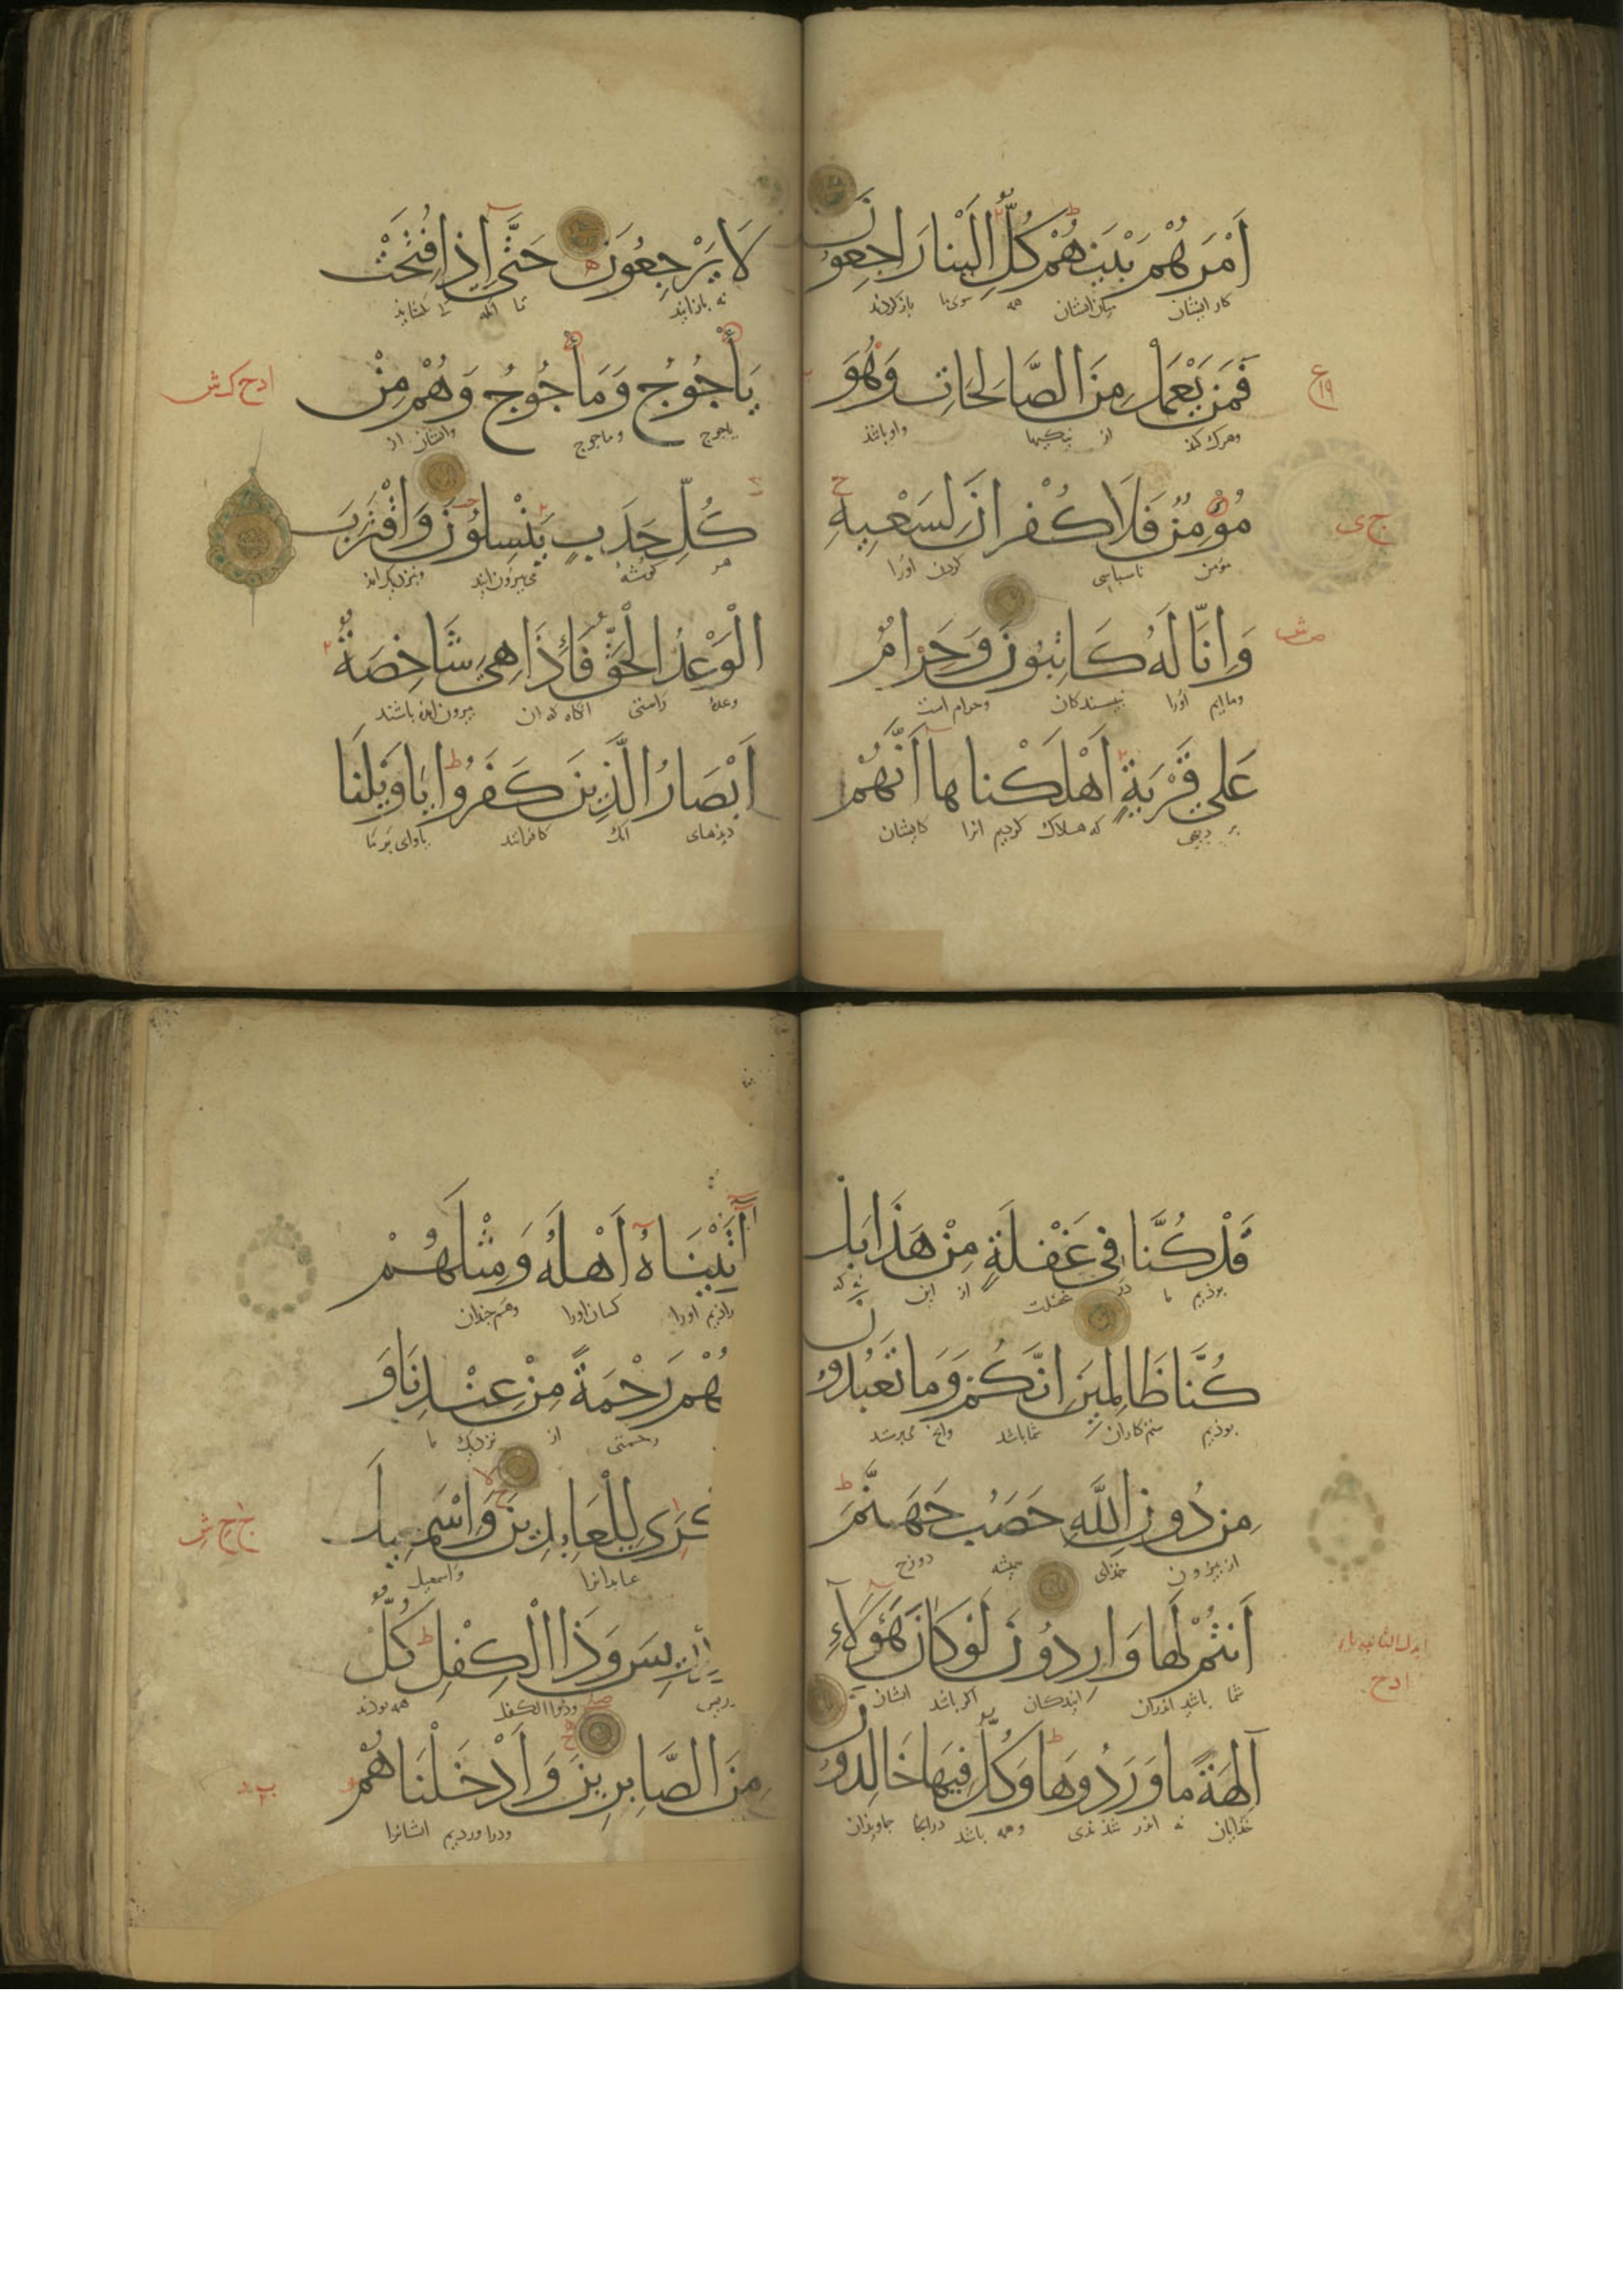 اَمْرَهُمْ بَيْنَهُمْ كُلٌّ اِلَيْنَا رَاجِعُونَ
كار ايشان ميان ايشان همه سوى ما بازكردند
فَمَنْ يَعْمَلْ مِنَ الصَّالِحَاتِ وَهُوَ
وهرك كند از نيكيها واو باشد
مُؤْمِنٌ فَلَا كُفْرَانَ لِسَعْيِهِ
مؤمن ناسپاسى كردن اورا
وَاِنَّا لَهُ كَاتِبُونَ وَحَرَامٌ
وما ايم اورا نبيسندكان وحرام است
عَلَى قَرْيَةٍ اَهْلَكْنَاهَا اَنَّهُمْ
بر ديهى كه هلاك كرديم انرا كايشان
لَا يَرْجِعُونَ حَتَّى اِذَا فُتِحَتْ
نه بازايند تا انكه كه بكشايند
يَأْجُوجُ وَمَأْجُوجُ وَهُمْ مِنْ
ياجوج وماجوج وايشان از
كُلِّ حَدَبٍ يَنْسِلُونَ وَاقْتَرَبَ
هر كوشۀ مى بيرون ايند ونزديك امد
الْوَعْدُ الْحَقُّ فَاِذَا هِيَ شَاخِصَةٌ
وعدۀ راستى انكاه كه ان بيرون امده باشند
اَبْصَارُ الَّذِينَ كَفَرُوا يَاوَيْلَنَا
ديدهاى انك كافرانند ياواى بر ما
قَدْ كُنَّا فِي غَفْلَةٍ مِنْ هَذَا بَلْ
بوذيم ما در غفلت از اين نه كه
كُنَّا ظَالِمِينَ اِنَّكُمْ وَمَا تَعْبُدُونَ
بوذيم ستم كاران شما باشد وانچ مى پرستند
مِنْ دُونِ اللَّهِ حَصَبُ جَهَنَّمَ
از بيرون خذاى هميشه دوزخ
اَنْتُمْ لَهَا وَارِدُونَ لَوْ كَانَ هَؤُلَاءِ
شما باشيد اندران ايندكان اكر باشد ايشان
آلِهَةً مَا وَرَدُوهَا وَكُلٌّ فِيهَا خَالِدُونَ
خذايان نه اندر شدندى وهمه باشد درانجا جاويذان
آتَيْنَاهُ اَهْلَهُ وَمِثْلَهُمْ
داذيم اورا كسان اورا وهم چندان
هُمْ رَحْمَةً مِنْ عِنْدِنَا وَ
رحمتى از نزديك ما
كْرَى لِلْعَابِدِينَ وَاِسْمَعِيلَ
عابدانرا واسمعيل
دْرِيسَ وَذَا الْكِفْلِ كُلٌّ
دريس وذوا الكفل همه بوذند
مِنَ الصَّابِرِينَ وَاَدْخَلْنَاهُمْ
ودر اورديم ايشانرا